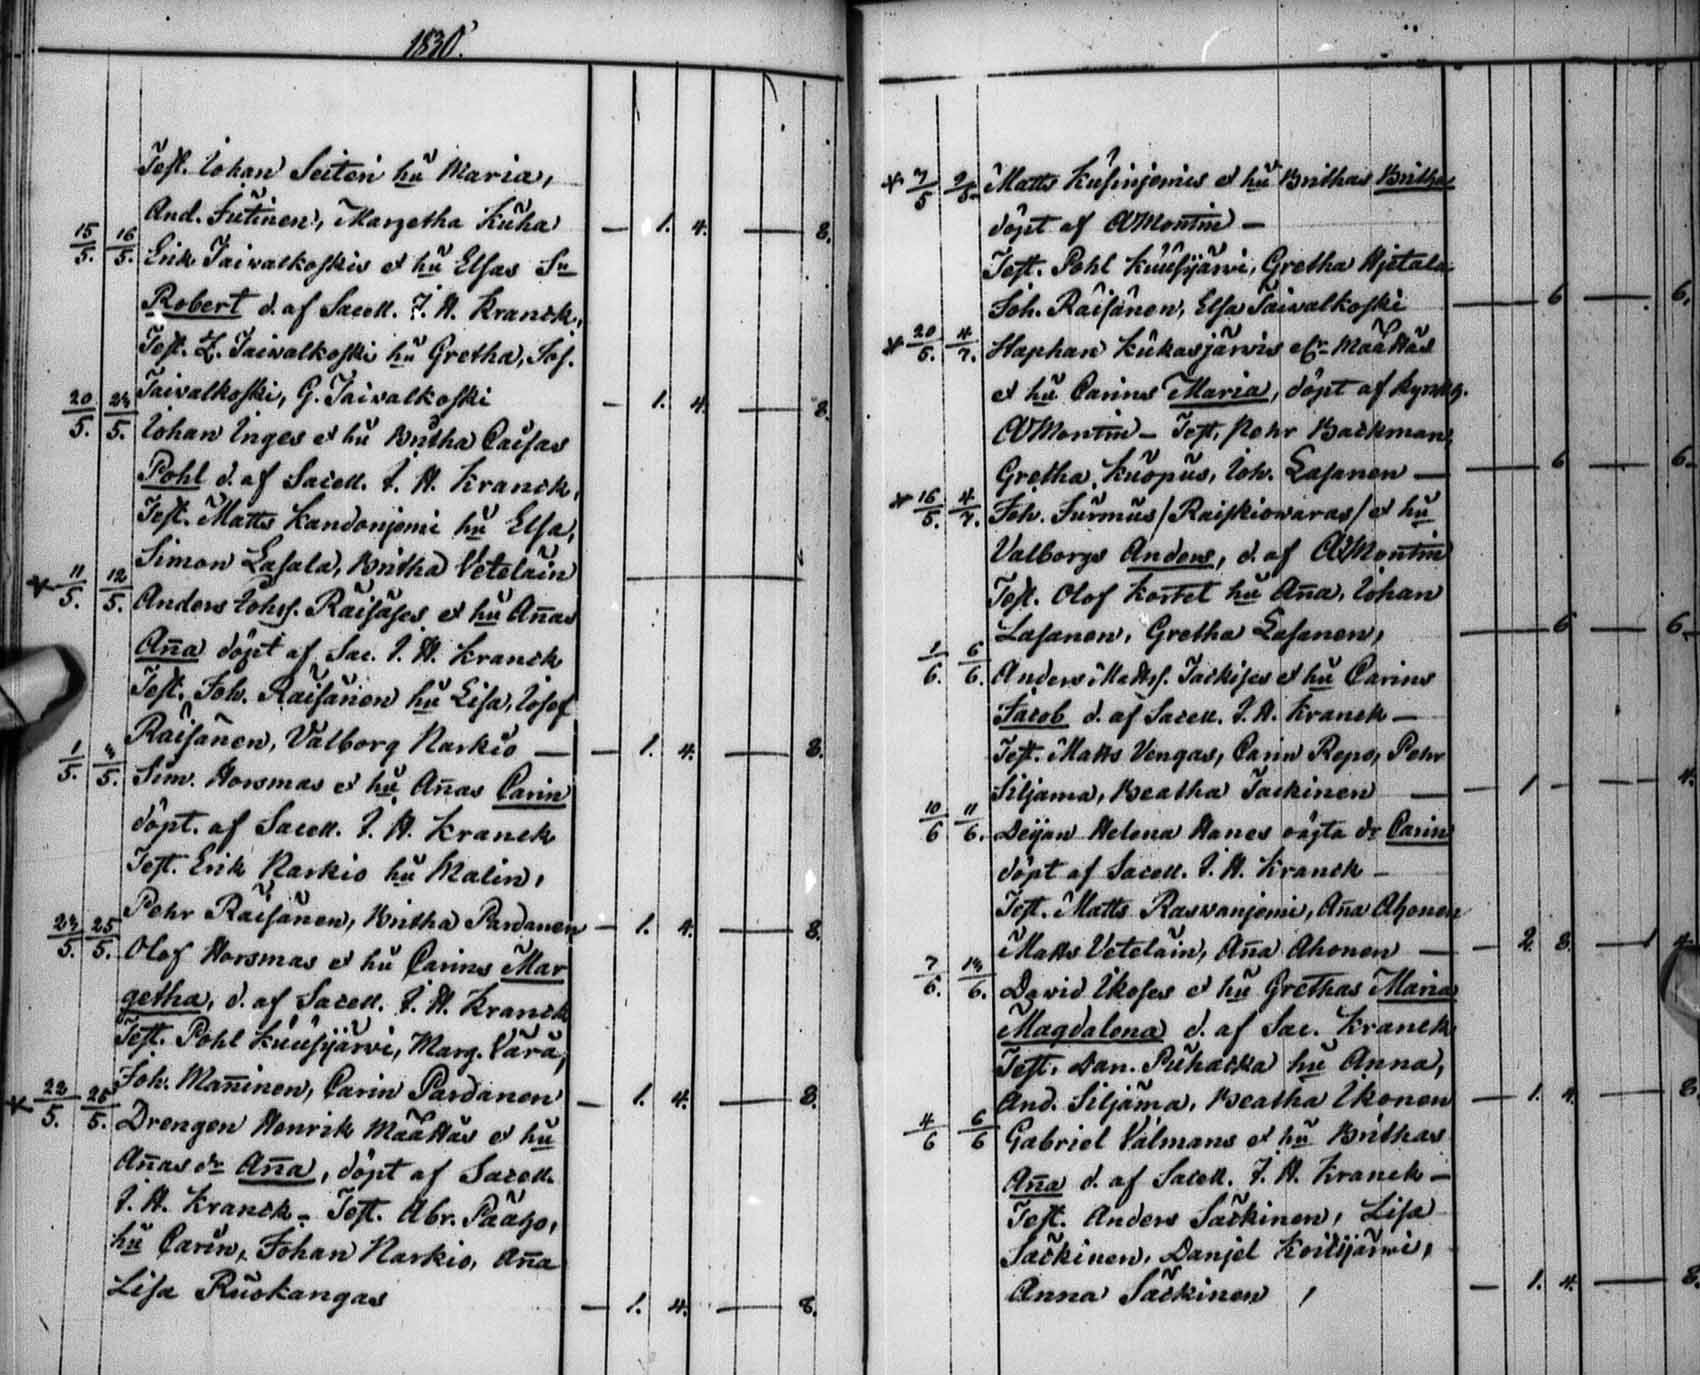 1830.
Test. Johan Seiten hu Maria,
And. Sutinen, Margetha Kuha — 1. 4. — 8.
15/5. 16/5. Erik Taivalkoskis et hu Elsas Sn
Robert d. af Sacell. J. H. Kranck,
Test. Z. Taivalkoski hu Gretha, Jos.
Taivalkoski, G. Taivalkoski — 1. 4. — 8.
20/5. 23/5. Johan Inges et hu Britha Caisas
Pohl d. af Sacell. J. H. Kranck,
Test. Matts Kandonjemi hu Elsa,
Simon Lasala, Britha Vetelain
* 11/5. 12/5. Anders Johss. Raisases et hu Añas
Aña döpt af Sac. J. H. Kranck
Test. Joh. Räisänen hu Lisa, Josef
Räisänen, Valborg Karkio — 1. 4. — 8.
1/5. 3/5. Sim. Horsmas et hu Añas Carin
döpt. af Sacell. J. H. Kranck
Test. Erik Karkio hu Malin,
Pehr Räisänen, Britha Pardanen — 1. 4. — 8.
23/5. 25/5. Olof Horsmas et hu Carins Mar
getha, d. af Sacell. J. H. Kranck
Test. Pohl Kuusijärvi, Marg. Vara,
Joh. Mañinen, Carin Pardanen — 1. 4. — 8.
* 22/5. 25/5. Drengen Henrik Määttäs et hu
Añas dr Aña, döpt af Sacell.
J. H. Kranck — Test. Abr. Paago,
hu Carin, Johan Karkio, Aña
Lisa Ruokangas — 1. 4. — 8.
* 7/5 9/5 Matts Kusinjemis et hu Brithas Britha
döpt af OVMontin —
Test. Pohl Kuusijärvi, Gretha Hjetala
Joh. Räisänen, Elsa Taivalkoski — 6 — 6.
* 20/5. 4/7. Staphan Kukasjärvis elr Määttäs
et hu Carins Maria, döpt af Kyrkhg.
OVMontin — Test. Pehr Backman,
Gretha Kuopus, Joh. Lasanen — 6 — 6.
* 16/5. 4/7. Joh. Surmus /Raiskiowaras/ et hu
Valborgs Anders, d. af OVMontin
Test. Olof Kortet hu Aña, Johan
Lasanen, Gretha Lasanen, — 6 — 6.
1/6. 6/6. Anders Mattss. Jackises et hu Carins
Jacob d. af Sacell. J. H. Kranck —
Test. Matts Vengas, Carin Repo, Pehr
Siljama, Beatha Jackinen — 1 — 4.
10/6 11/6. Deijan Helena Hanes oägta dr Carin
döpt af Sacell. J. H. Kranck —
Test. Matts Rasvanjemi, Aña Ahonen
Matts Vetelain, Aña Ahonen — 2. 8. — 1 4
7/6. 13/6. David Ikoses et hu Grethas Maria
Magdalena d. af Sac. Kranck
Test. Dan. Puhacka hu Anna,
And. Siljama, Beatha Ikonen — 1. 4. — 8.
4/6 6/6 Gabriel Valmans et hu Brithas
Aña d. af Sacell. J. H. Kranck —
Test. Anders Säckinen, Lisa
Säckinen, Danjel Koitijärwi,
Anna Säckinen — 1. 4. — 8.